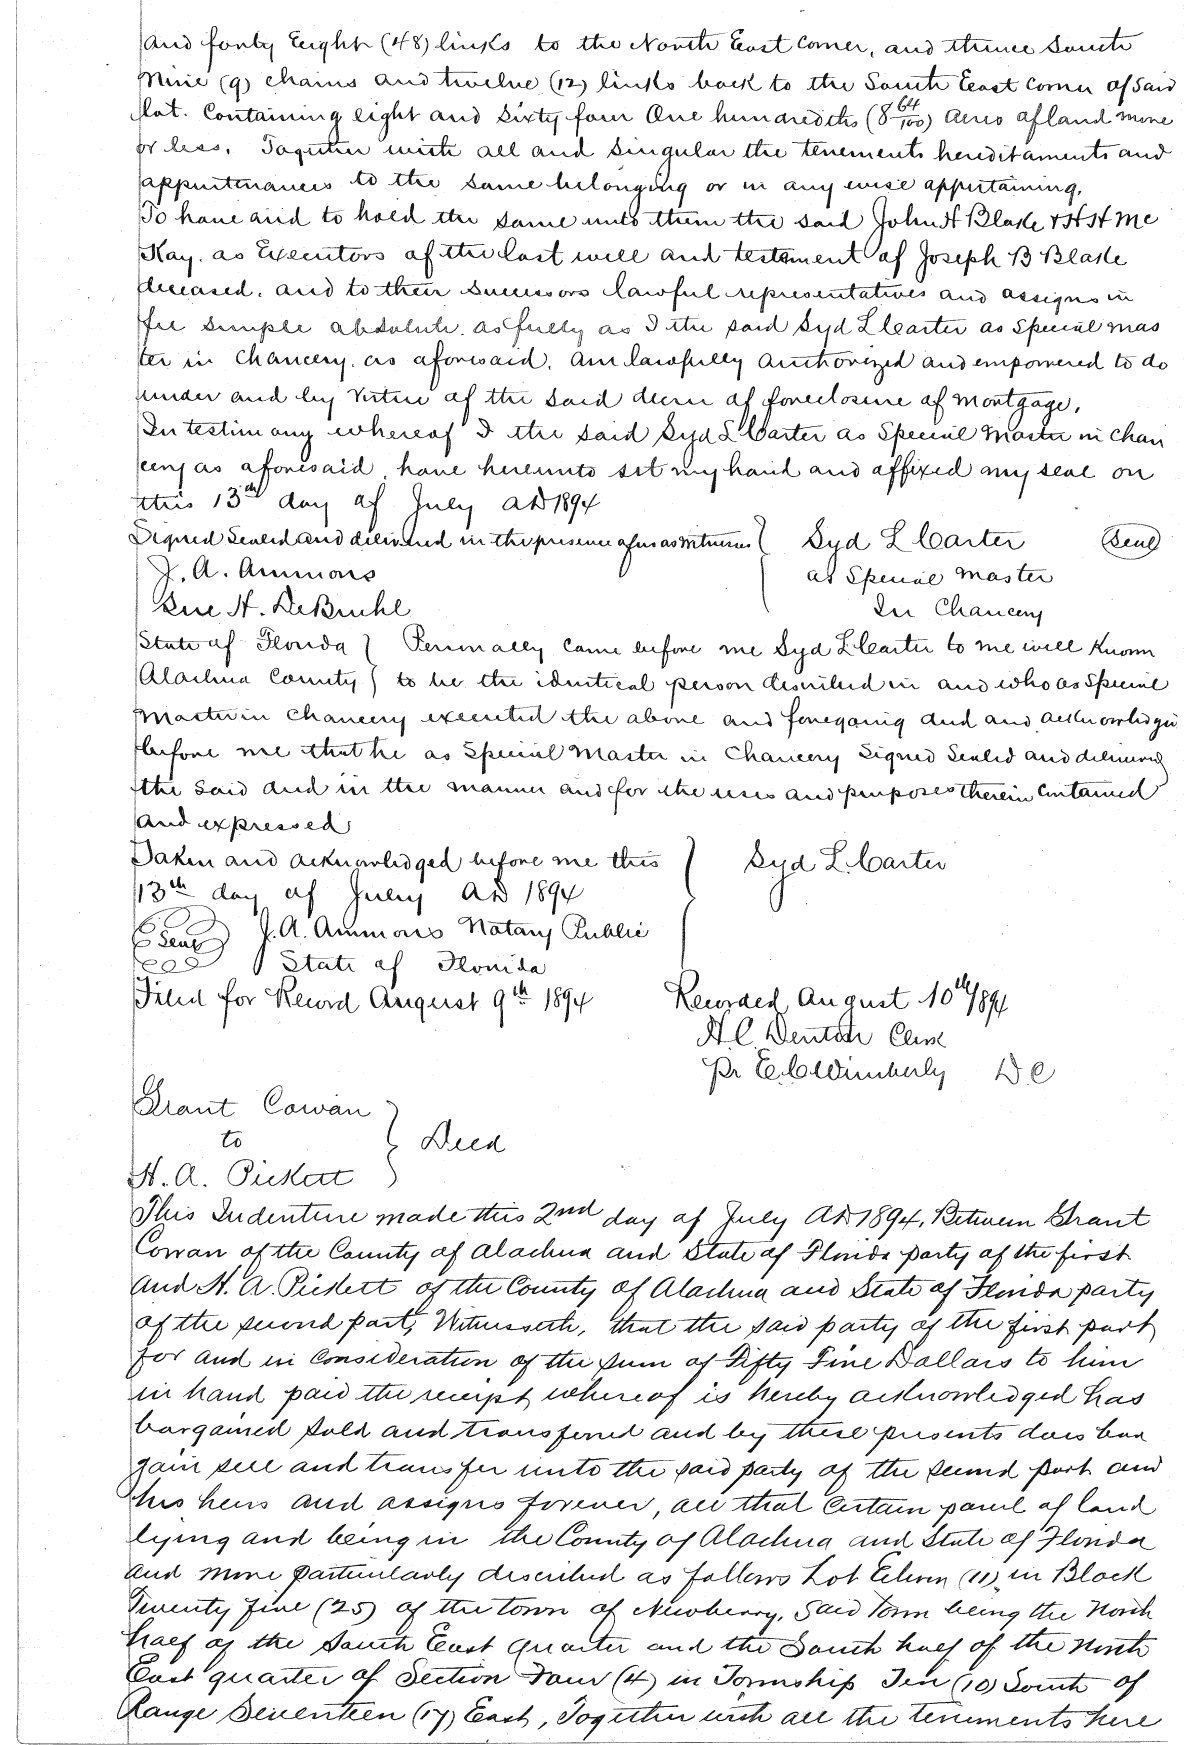 and forty Eight (48) links to the North East Corner, and thence South
Nine (9) chains and twelve (12) links back to the South East Corner of Said
lot. Containing eight and Sixty four One hundredths (8 64/100) acres of land more
or less. Together with all and singular the tenements hereditaments and
appurtenances to the same belonging or in any wise appertaining.
To have and to hold the same unto them the said John H Blake & H H Mc
Kay. as Executors of the last will and testament of Joseph B Blake
deceased. and to their successors lawful representatives and assigns in
fee simple absolute. as fully as I the said Syd L Carter as Special mas
ter in Chancery. as aforesaid. am lawfully authorized and empowered to do
under and by virtue of the said decree of foreclosure of mortgage.
In testimony whereof I the said Syd L Carter as Special Master in Chan
cery as aforesaid, have hereunto set my hand and affixed my seal on
this 13th day of July AD 1894
Signed Sealed and delivered in the presence of us as witnesses } Syd L Carter (Seal)
J. A. Ammons as Special Master
Sue H. DeBruhl In Chancery
State of Florida } Personally came before me Syd L Carter to me well known
Alachua County } to be the identical person described in and who as Special
Master in Chancery executed the above and foregoing deed and acknowledged
before me that he as Special Master in Chancery Signed Sealed and delivered
the said deed in the manner and for the uses and purposes therein contained
and expressed
Taken and acknowledged before me this } Syd L. Carter
13th day of July AD 1894
(Seal) J. A. Ammons Notary Public
State of Florida
Filed for Record August 9th 1894 Recorded August 10th/894
H. C. Denton Clerk
Pr E. C. Wimberly D C
Grant Cowan }
to } Deed
H. A. Pickett }
This Indenture made this 2nd day of July AD 1894, Between Grant
Cowan of the County of Alachua and State of Florida party of the first
and H. A. Pickett of the County of Alachua and State of Florida party
of the second part, Witnesseth, that the said party of the first part
for and in consideration of the sum of Fifty Five Dollars to him
in hand paid the receipt whereof is hereby acknowledged has
bargained sold and transferred and by these presents does bar
gain sell and transfer unto the said party of the second part and
his heirs and assigns forever, all that certain parcel of land
lying and being in the County of Alachua and State of Florida
and more particularly described as follows Lot Eleven (11) in Block
Twenty five (25) of the town of Newberry, Said Town being the North
half of the South East quarter and the South half of the North
East quarter of Section Four (4) in Township Ten (10) South of
Range Seventeen (17) East, Together with all the tenements here